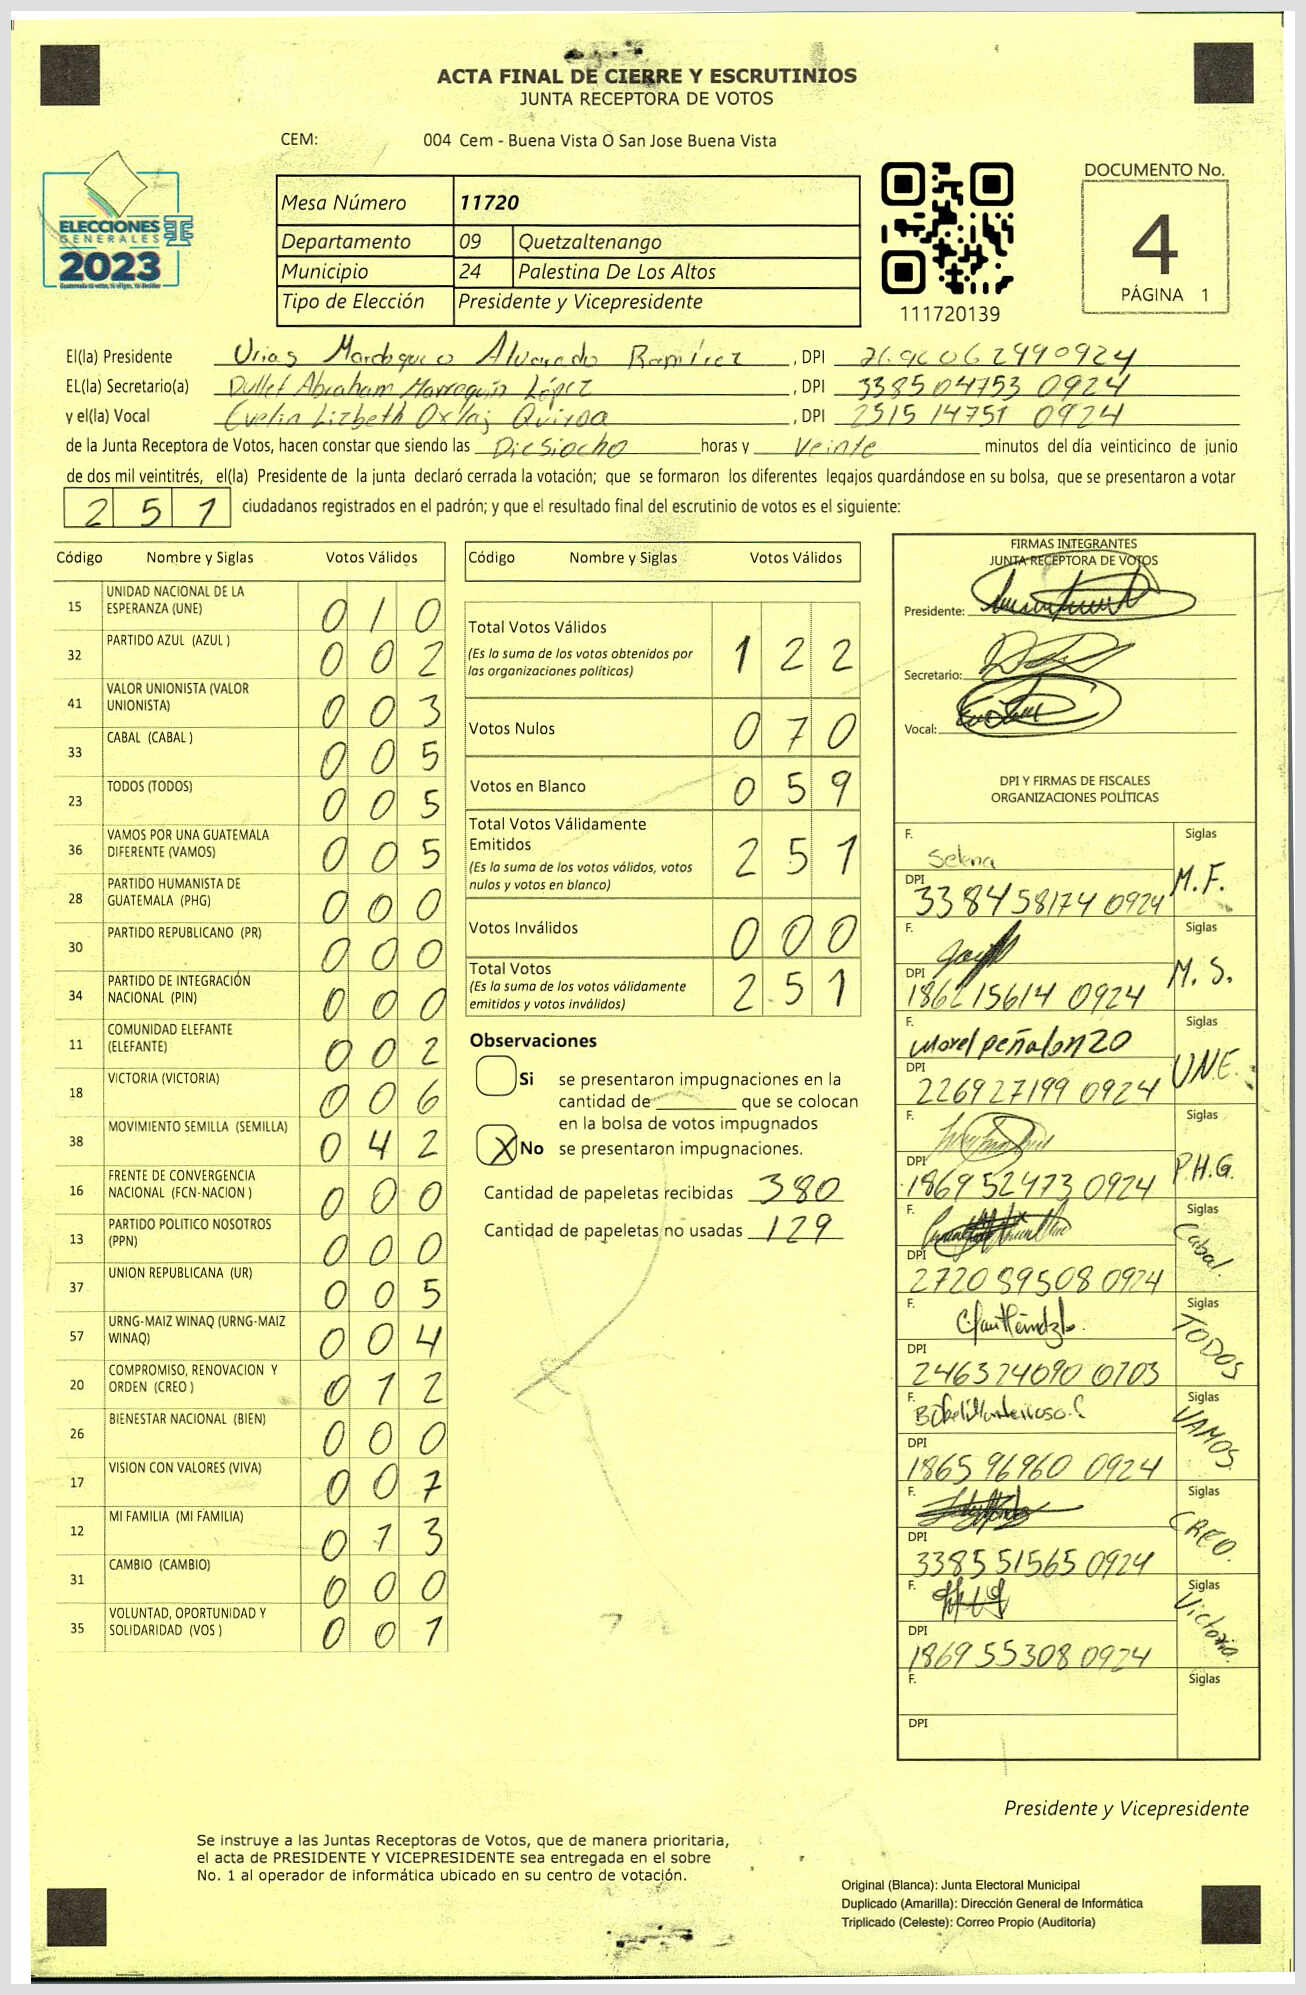 ACTA FINAL DE CIERRE Y ESCRUTINIOS
JUNTA RECEPTORA DE VOTOS
CEM: 004 Cem - Buena Vista O San Jose Buena Vista
ELECCIONES
GENERALES
2023
Mesa Número 11720
Departamento 09 Quetzaltenango
Municipio 24 Palestina De Los Altos
Tipo de Elección Presidente y Vicepresidente
111720139
DOCUMENTO No.
4
PÁGINA 1
El(la) Presidente Urias Mardoqueo Alvarado Ramírez, DPI
EL(la) Secretario(a) Dullet Abraham Marroquín López, DPI 338504753 0924
y el(la) Vocal Evelin Lizbeth Oxlaj Quiroa, DPI 251514751 0924
de la Junta Receptora de Votos, hacen constar que siendo las Diesiocho horas y veinte minutos del día veinticinco de junio
de dos mil veintitrés, el(la) Presidente de la junta declaró cerrada la votación; que se formaron los diferentes legajos guardándose en su bolsa, que se presentaron a votar
251 ciudadanos registrados en el padrón; y que el resultado final del escrutinio de votos es el siguiente:
Código Nombre y Siglas Votos Válidos
15 UNIDAD NACIONAL DE LA ESPERANZA (UNE) 010
32 PARTIDO AZUL (AZUL ) 002
41 VALOR UNIONISTA (VALOR UNIONISTA) 003
33 CABAL (CABAL ) 005
23 TODOS (TODOS) 005
36 VAMOS POR UNA GUATEMALA DIFERENTE (VAMOS) 005
28 PARTIDO HUMANISTA DE GUATEMALA (PHG) 000
30 PARTIDO REPUBLICANO (PR) 000
34 PARTIDO DE INTEGRACIÓN NACIONAL (PIN) 000
11 COMUNIDAD ELEFANTE (ELEFANTE) 002
18 VICTORIA (VICTORIA) 006
38 MOVIMIENTO SEMILLA (SEMILLA) 042
16 FRENTE DE CONVERGENCIA NACIONAL (FCN-NACION ) 000
13 PARTIDO POLITICO NOSOTROS (PPN) 000
37 UNION REPUBLICANA (UR) 005
57 URNG-MAIZ WINAQ (URNG-MAIZ WINAQ) 004
20 COMPROMISO, RENOVACION Y ORDEN (CREO ) 012
26 BIENESTAR NACIONAL (BIEN) 000
17 VISION CON VALORES (VIVA) 007
12 MI FAMILIA (MI FAMILIA) 013
31 CAMBIO (CAMBIO) 000
35 VOLUNTAD, OPORTUNIDAD Y SOLIDARIDAD (VOS ) 001
Código Nombre y Siglas Votos Válidos
Total Votos Válidos 122
(Es la suma de los votos obtenidos por
las organizaciones políticas)
Votos Nulos 070
Votos en Blanco 059
Total Votos Válidamente
Emitidos 251
(Es la suma de los votos válidos, votos
nulos y votos en blanco)
Votos Inválidos 000
Total Votos 251
(Es la suma de los votos válidamente
emitidos y votos inválidos)
Observaciones
Si se presentaron impugnaciones en la
cantidad de ________ que se colocan
en la bolsa de votos impugnados
X No se presentaron impugnaciones.
Cantidad de papeletas recibidas 380
Cantidad de papeletas no usadas 129
FIRMAS INTEGRANTES
JUNTA RECEPTORA DE VOTOS
Presidente:
Secretario:
Vocal:
DPI Y FIRMAS DE FISCALES
ORGANIZACIONES POLÍTICAS
F. Selena Siglas M.F.
DPI 3384581740924
F. Siglas M.S.
DPI 186215614 0924
F. Siglas U.N.E.
DPI 226927199 0924
F. Siglas P.H.G.
DPI 186952473 0924
F. Siglas Cabal.
DPI 272089508 0924
F. Siglas TODOS
DPI 246324090 0703
F. Siglas VAMOS.
DPI 186596960 0924
F. Siglas CREO.
DPI 338551565 0924
F. Siglas Victoria.
DPI 186955308 0924
F. Siglas
DPI
Presidente y Vicepresidente
Se instruye a las Juntas Receptoras de Votos, que de manera prioritaria,
el acta de PRESIDENTE Y VICEPRESIDENTE sea entregada en el sobre
No. 1 al operador de informática ubicado en su centro de votación.
Original (Blanca): Junta Electoral Municipal
Duplicado (Amarilla): Dirección General de Informática
Triplicado (Celeste): Correo Propio (Auditoría)